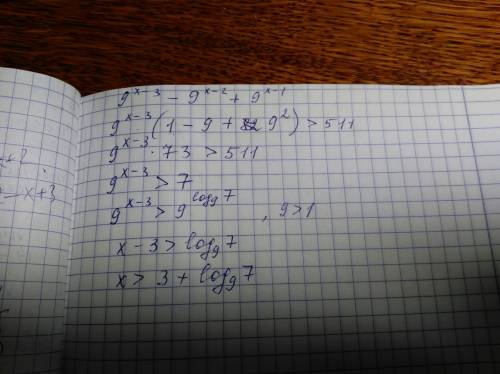 9^(x-3) - 9^(x-2) + 9^(x-1)
9^(x-3) (1 - 9 + 9^2) > 511
9^(x-3) · 73 > 511
9^(x-3) > 7
9^(x-3) > 9^(log_9 7) , 9 > 1
x - 3 > log_9 7
x > 3 + log_9 7
- x + 3